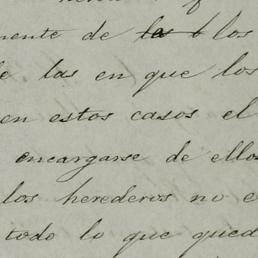 mente de los
las en que los
en estos casos el
encargarse de ellos
los herederos no e
todo lo que qued